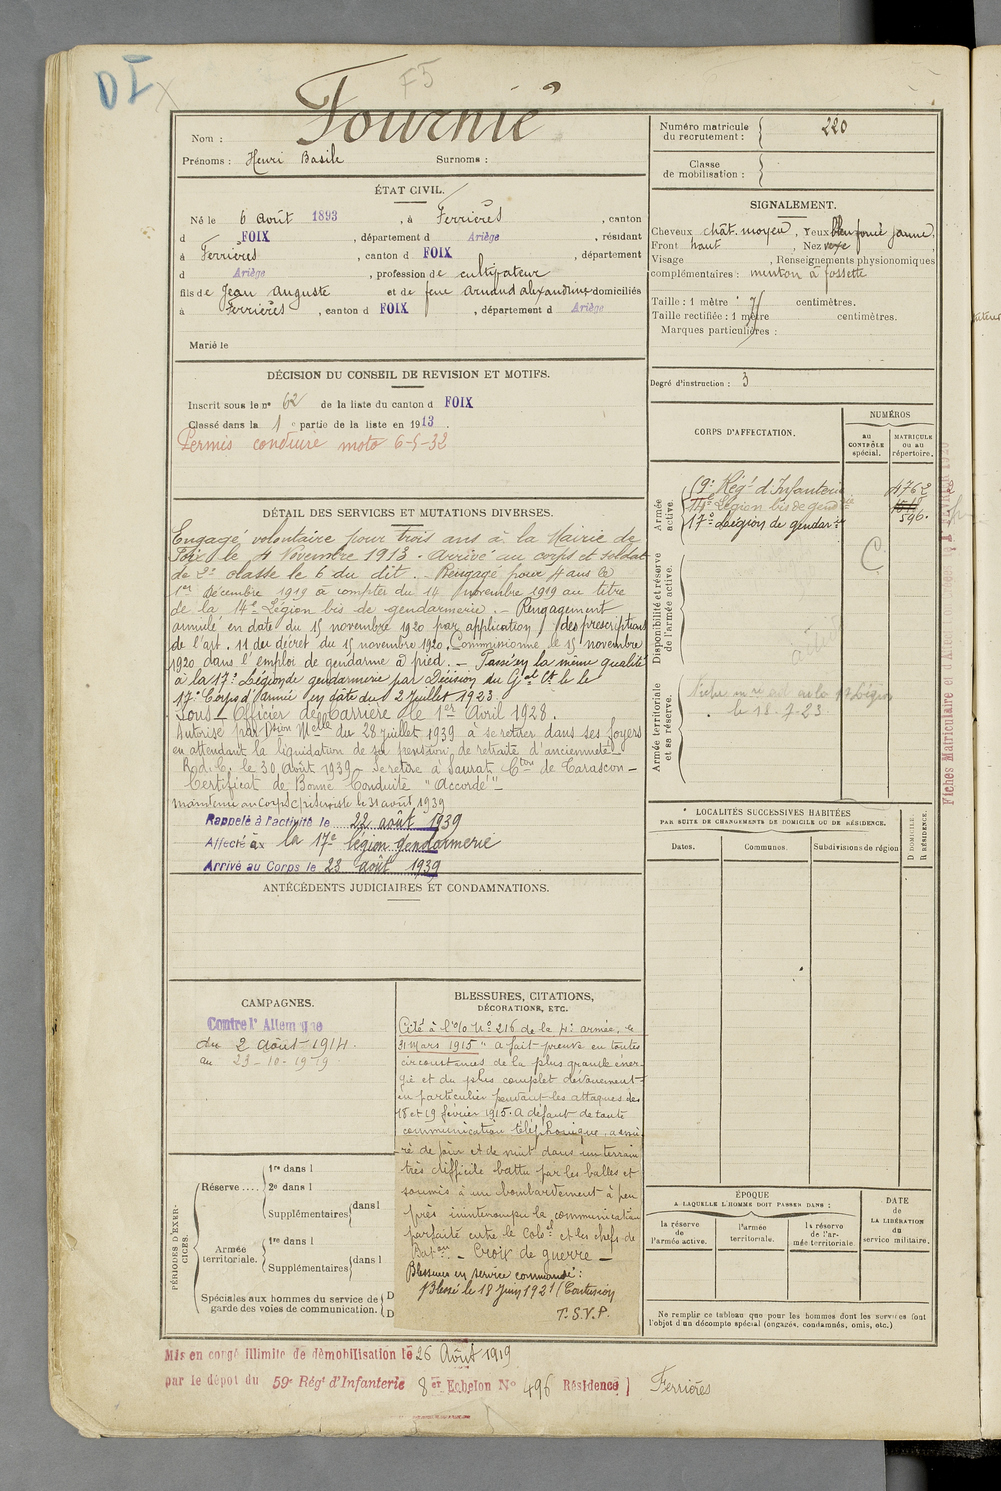 DI
F5
Fournié
Nom :
Prénoms : Henri Basile Surnoms :
Numéro matricule
du recrutement : 220
Classe
de mobilisation :
ÉTAT CIVIL.
Né le 6 Août 1893, à Ferrières, canton
d FOIX, département d Ariège, résidant
à Ferrières, canton d FOIX, département
d Ariège, profession de cultivateur
fils de Jean Auguste et de feue Arnaud Alexandrine domiciliés
à Ferrières, canton d FOIX, département d Ariège
Marié le
SIGNALEMENT.
Cheveux chât. moyen, Yeux bleu foncé jaune.
Front haut, Nez vexe
Visage, Renseignements physionomiques
complémentaires : menton à fossette
Taille : 1 mètre 7 centimètres.
Taille rectifiée : 1 mètre centimètres.
Marques particulières :
Degré d'instruction : 3
DÉCISION DU CONSEIL DE REVISION ET MOTIFS.
Inscrit sous le n° 62 de la liste du canton d FOIX
Classé dans la 1e partie de la liste en 1913.
Permis conduire moto 6-5-32
DÉTAIL DES SERVICES ET MUTATIONS DIVERSES.
Engagé volontaire pour trois ans à la Mairie de
Foix le 4 Novembre 1913. Arrivé au corps et soldat
de 2e classe le 6 du dit. Rengagé pour 4 ans le
1er Décembre 1919 à compter du 14 novembre 1919 au titre
de la 14e Légion bis de gendarmerie. Rengagement
annulé en date du 15 novembre 1920 par application des prescriptions
de l'art. 11 du décret du 15 novembre 1920. Commissionné le 15 novembre
1920 dans l'emploi de gendarme à pied. Passé en la même qualité
à la 17e Légion de gendarmerie par Décision du Gal Ct le le
17e Corps d'armée en date du 2 Juillet 1923.
Sous-Officier de Carrière le 1er Avril 1928.
Autorisé par Dsion Melle du 28 juillet 1939 à se retirer dans ses foyers
en attendant la liquidation de sa pension de retraite d'ancienneté
R.d.C. le 30 Août 1939 - Se retire à Saurat, Cton de Tarascon -
Certificat de Bonne Conduite "Accordé"
maintenu au Corps le 31 août 1939
Rappelé à l'activité le 22 août 1939
Affecté à la 17e légion gendarmerie
Arrivé au Corps le 23 août 1939
CORPS D'AFFECTATION.
NUMÉROS
au
CONTRÔLE
spécial.
MATRICULE
ou au
répertoire.
Armée
active.
9e Régt d'Infanterie 4762
14e Légion bis de gend
17e Légion de gendarie 596.
C
Disponibilité et réserve
de l'armée active.
Armée territoriale
et sa réserve.
le 18.7.23
LOCALITÉS SUCCESSIVES HABITÉES
PAR SUITE DE CHANGEMENTS DE DOMICILE OU DE RÉSIDENCE.
Dates.
Communes.
Subdivisions de région
D DOMICILE.
R RÉSIDENCE.
ANTÉCÉDENTS JUDICIAIRES ET CONDAMNATIONS.
CAMPAGNES.
Contre l'Allemagne
du 2 Août 1914.
au 23-10-1919
BLESSURES, CITATIONS,
DÉCORATIONS, ETC.
Cité à l'o/o No 216 de la 4e armée, le
31 mars 1915 "A fait preuve en toutes
circonstances de la plus grande éner-
gie et du plus complet dévouement
en particulier pendant les attaques des
18 et 19 février 1915. A défaut de toute
communication téléphonique, a assu-
ré de jour et de nuit dans un terrain
très difficile battu par les balles et
soumis à un bombardement à peu
près ininterrompu la communication
parfaite entre le Colel et les chefs de
Baton. - Croix de guerre -
Blessures en service commandé :
Blessé le 18 Juin 1921 (Contusion
T.S.V.P.
PÉRIODES D'EXER-
CICES.
Réserve ....
1re dans l
2e dans l
Supplémentaires
dans l
Armée
territoriale.
1re dans l
Supplémentaires
dans l
Spéciales aux hommes du service de
garde des voies de communication.
D
D
ÉPOQUE
A LAQUELLE L'HOMME DOIT PASSER DANS :
la réserve
de
l'armée active.
l'armée
territoriale.
la réserve
de l'ar-
mée territoriale.
DATE
de
LA LIBÉRATION
du
service militaire.
Ne remplir ce tableau que pour les hommes dont les services font
l'objet d'un décompte spécial (engagés, condamnés, omis, etc.)
Mis en congé illimité de démobilisation le 26 Août 1919
par le dépôt du 59e Régt d'Infanterie 8er Echelon No 496 Résidence ] Ferrières